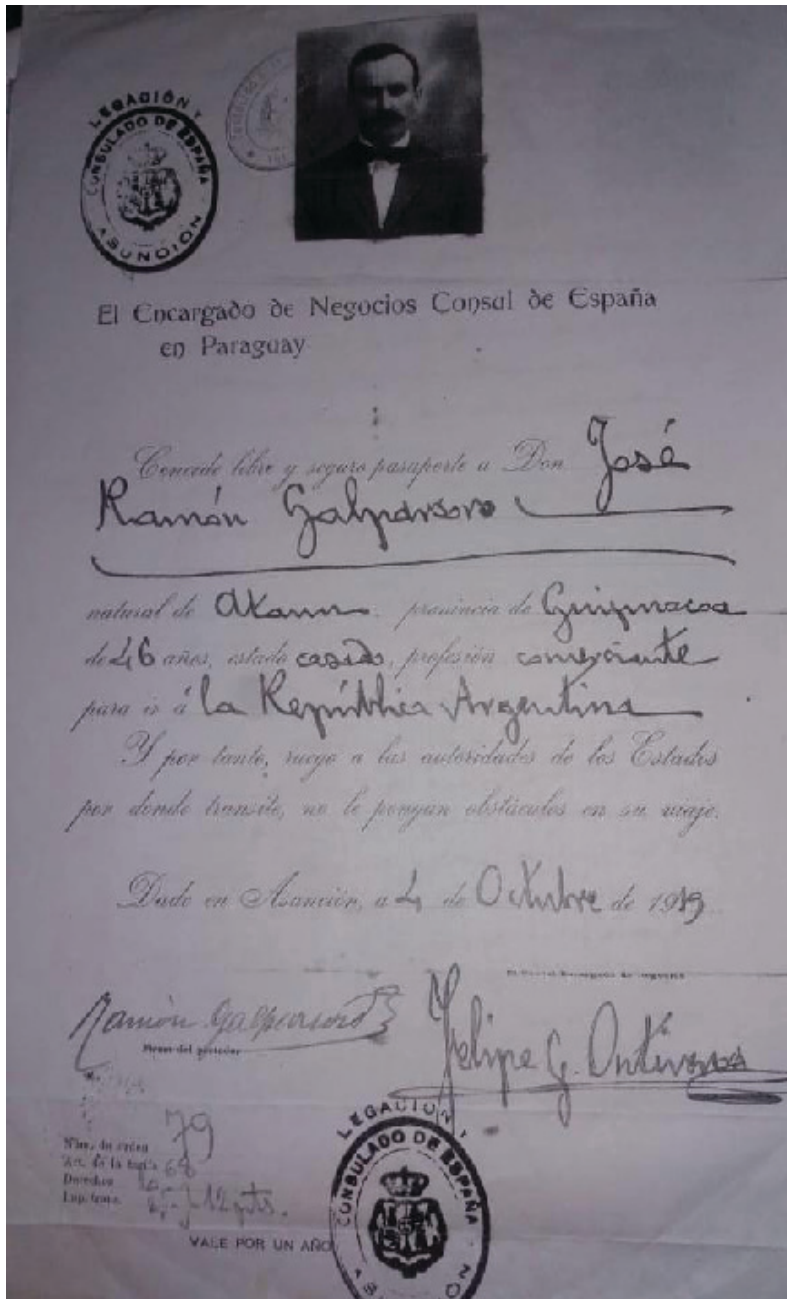 LEGACIÓN Y
CONSULADO DE ESPAÑA
ASUNCIÓN
El Encargado de Negocios Consul de España
en Paraguay
Concede libre y seguro pasaporte a Don José
Ramón Galparsoro
natural de Ataun provincia de Guipuzcoa
de 46 años, estado casado, profesión comerciante
para ir á la República Argentina
Y por tanto, ruego a las autoridades de los Estados
por donde transite, no le pongan obstáculos en su viaje.
Dado en Asunción, a 4 de Octubre de 1919
Ramón Galparsoro
Felipe G. Ontiveros
Firma del portador
Núm. de orden 79
Art. de la tarifa 68
Derechos
12 pts.
VALE POR UN AÑO
LEGACIÓN Y
CONSULADO DE ESPAÑA